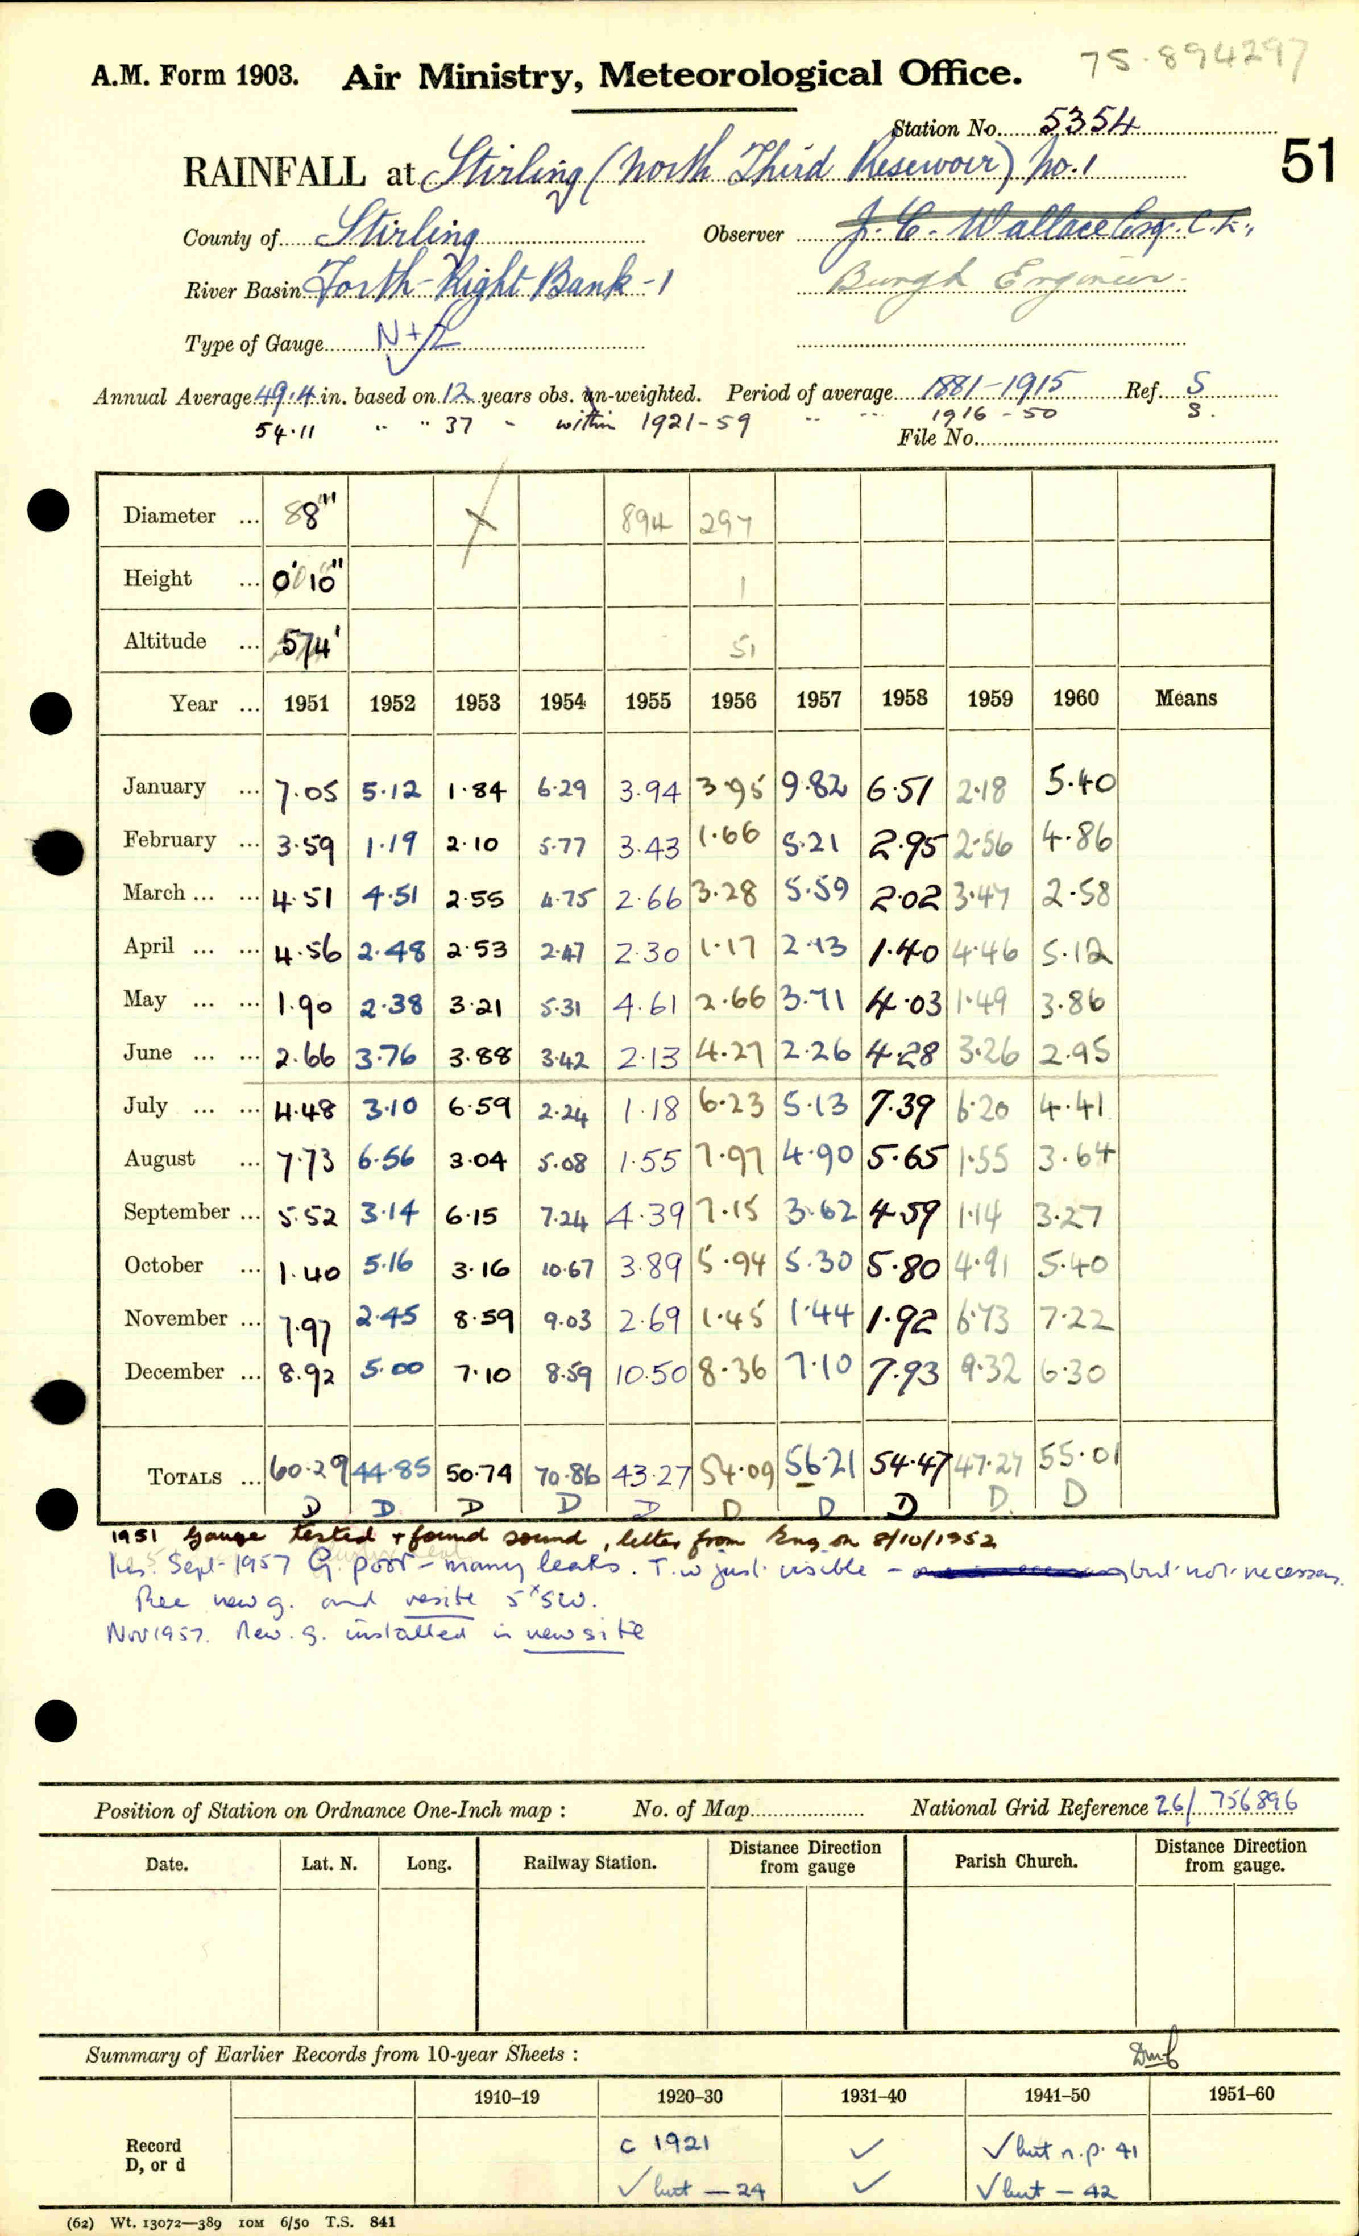 75.894297
A.M. Form 1903. Air Ministry, Meteorological Office.
Station No. 5354
51
RAINFALL at Stirling (North Third Reservoir) No. 1
County of Stirling Observer J. C. Wallace Esq. C.E.,
River Basin Forth-Right Bank-1 Burgh Engineer.
Type of Gauge
Annual Average 49.4 in. based on 12 years obs. un-weighted. Period of average 1881-1915 Ref. S
54.11 " " 37 " within 1921-59 " " 1916-50 S.
File No.
Diameter ... 8" 894 297
Height ... 0' 10" 1
Altitude ... 574' 51
Year ... 1951 1952 1953 1954 1955 1956 1957 1958 1959 1960 Means
January ... 7.05 5.12 1.84 6.29 3.94 3.95 9.82 6.51 2.18 5.40
February ... 3.59 1.19 2.10 5.77 3.43 1.66 5.21 2.95 2.56 4.86
March ... ... 4.51 4.51 2.55 4.75 2.66 3.28 5.59 2.02 3.47 2.58
April ... ... 4.56 2.48 2.53 2.47 2.30 1.17 2.13 1.40 4.46 5.12
May ... ... 1.90 2.38 3.21 5.31 4.61 2.66 3.71 4.03 1.49 3.86
June ... ... 2.66 3.76 3.88 3.42 2.13 4.27 2.26 4.28 3.26 2.95
July ... ... 4.48 3.10 6.59 2.24 1.18 6.23 5.13 7.39 6.20 4.41
August ... 7.73 6.56 3.04 5.08 1.55 7.97 4.90 5.65 1.55 3.64
September ... 5.52 3.14 6.15 7.24 4.39 7.15 3.62 4.59 1.14 3.27
October ... 1.40 5.16 3.16 10.67 3.89 5.94 5.30 5.80 4.91 5.40
November ... 7.97 2.45 8.59 9.03 2.69 1.45 1.44 1.92 6.73 7.22
December ... 8.92 5.00 7.10 8.59 10.50 8.36 7.10 7.93 9.32 6.30
TOTALS ... 60.29 44.85 50.74 70.86 43.27 54.09 56.21 54.47 47.27 55.01
D D D D D D D D D. D
1951 Gauge tested + found sound, letter from Eng. on 8/10/1952
Ins. Sept-1957 G. poor - many leaks. T.w just visible - but not necessary.
Rec new g. and resite 5ˣ SW.
Nov 1957. New. g. installed in new site
Position of Station on Ordnance One-Inch map : No. of Map National Grid Reference 26/ 756896
Date. Lat. N. Long. Railway Station. Distance from gauge Direction Parish Church. Distance from gauge. Direction
Summary of Earlier Records from 10-year Sheets :
1910–19 1920–30 1931–40 1941–50 1951–60
Record D, or d c 1921 ✓ ✓ but n.p. 41
✓ but - 24 ✓ ✓ but - 42
(62) Wt. 13072—389 10M 6/50 T.S. 841